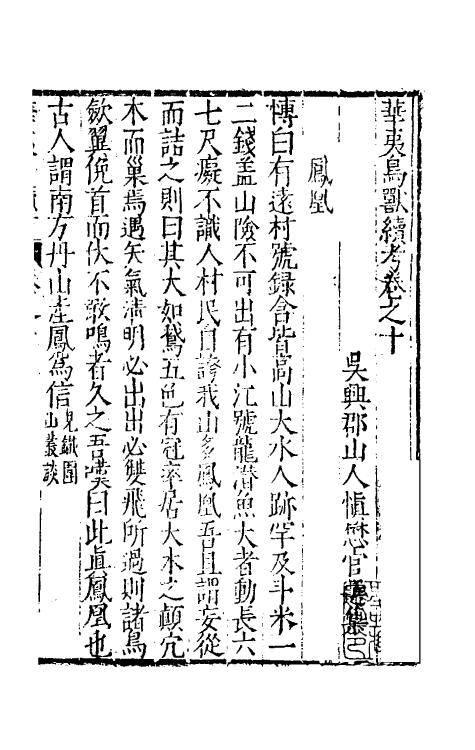 華夷鳥獸續考卷之十
吳興郡山人慎懋官
鳳凰
博白有遠村號録舍皆高山大水人跡罕及斗米一
二錢盖山險不可出有小江號龍潛魚大者動長六
七尺癡不識人村民自誇我山多鳳凰吾且謂妄從
而詰之則曰其大如鵞五色有冠率居大木之顛穴
木而巢焉遇天氣清明必出出必雙飛所過則諸鳥
歛翼俛首而伏不歌鳴者久之吾嘗曰此真鳳凰也
古人謂南方丹山產鳳為信見鐵圍山叢談